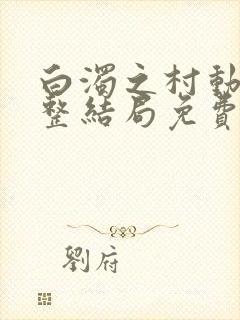 白濁之村動
整結局免費
劉府